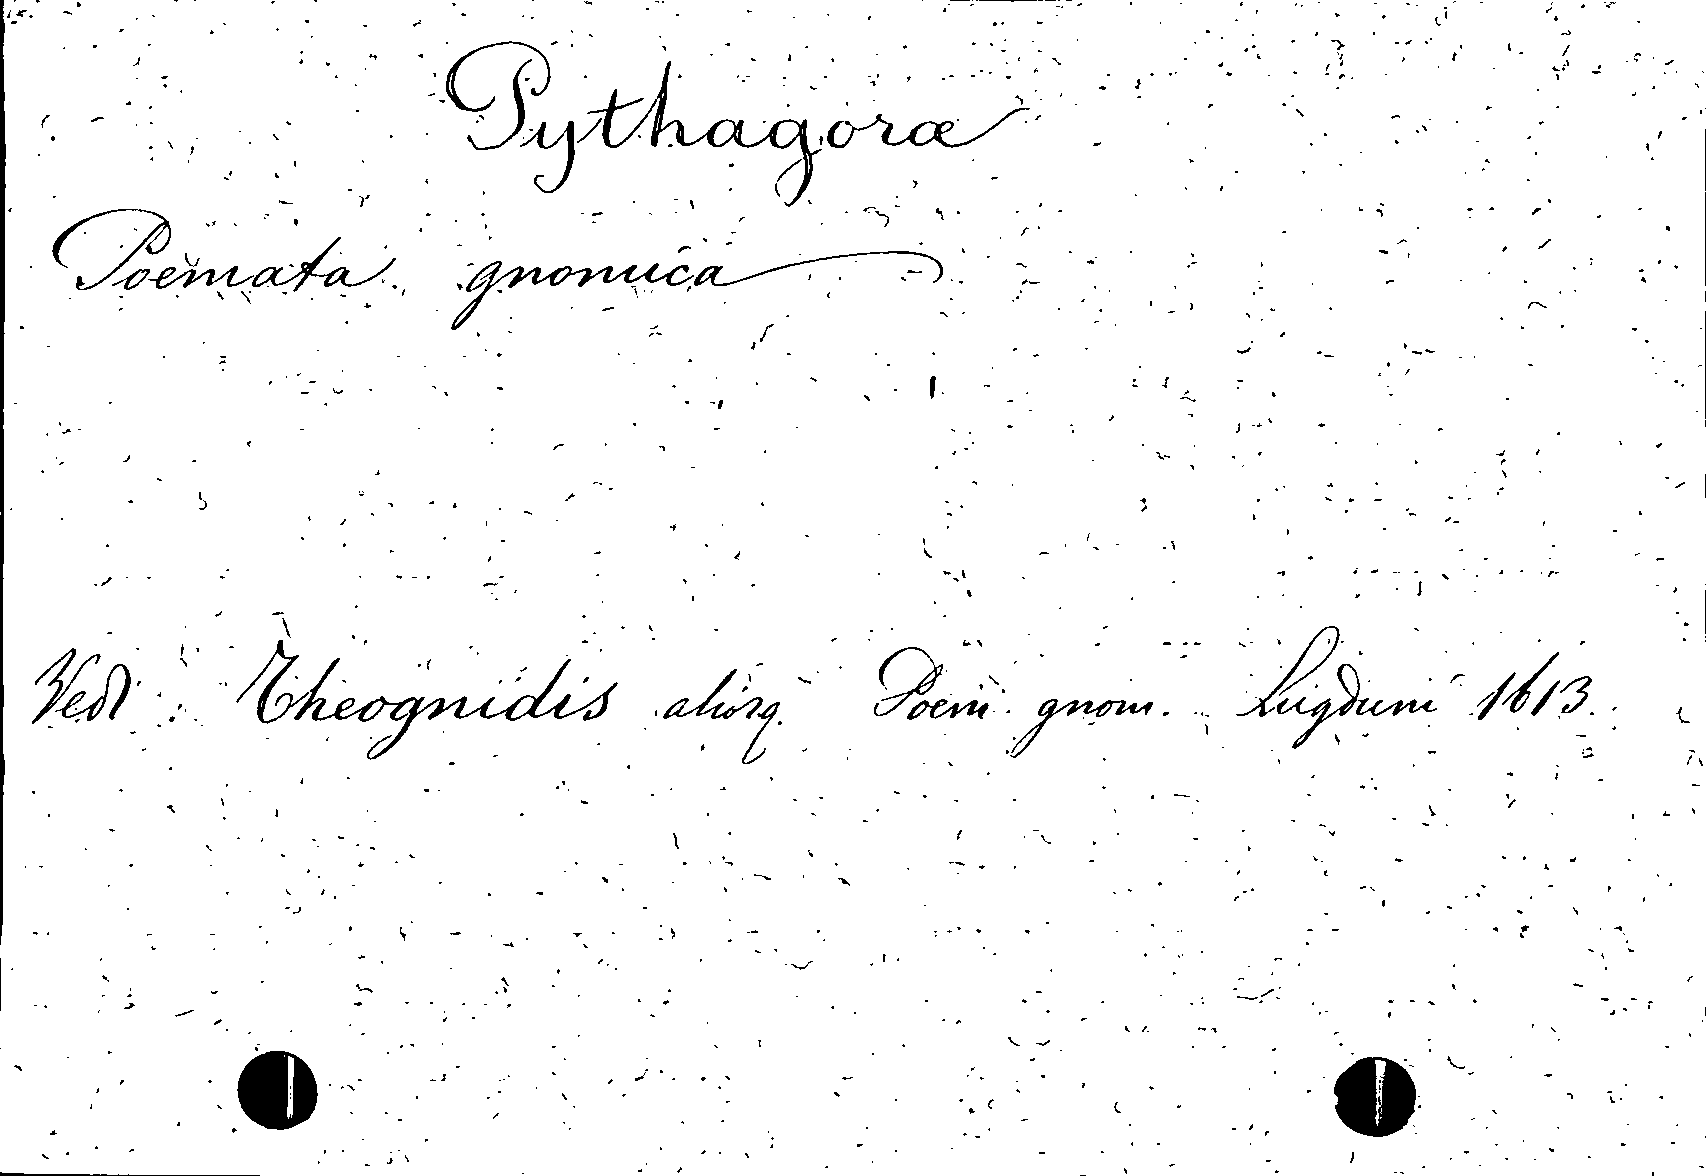 Pythagoræ
Poëmata gnomica
Vedi: Theognidis aliorq. Poem. gnom. Lugduni 1613.